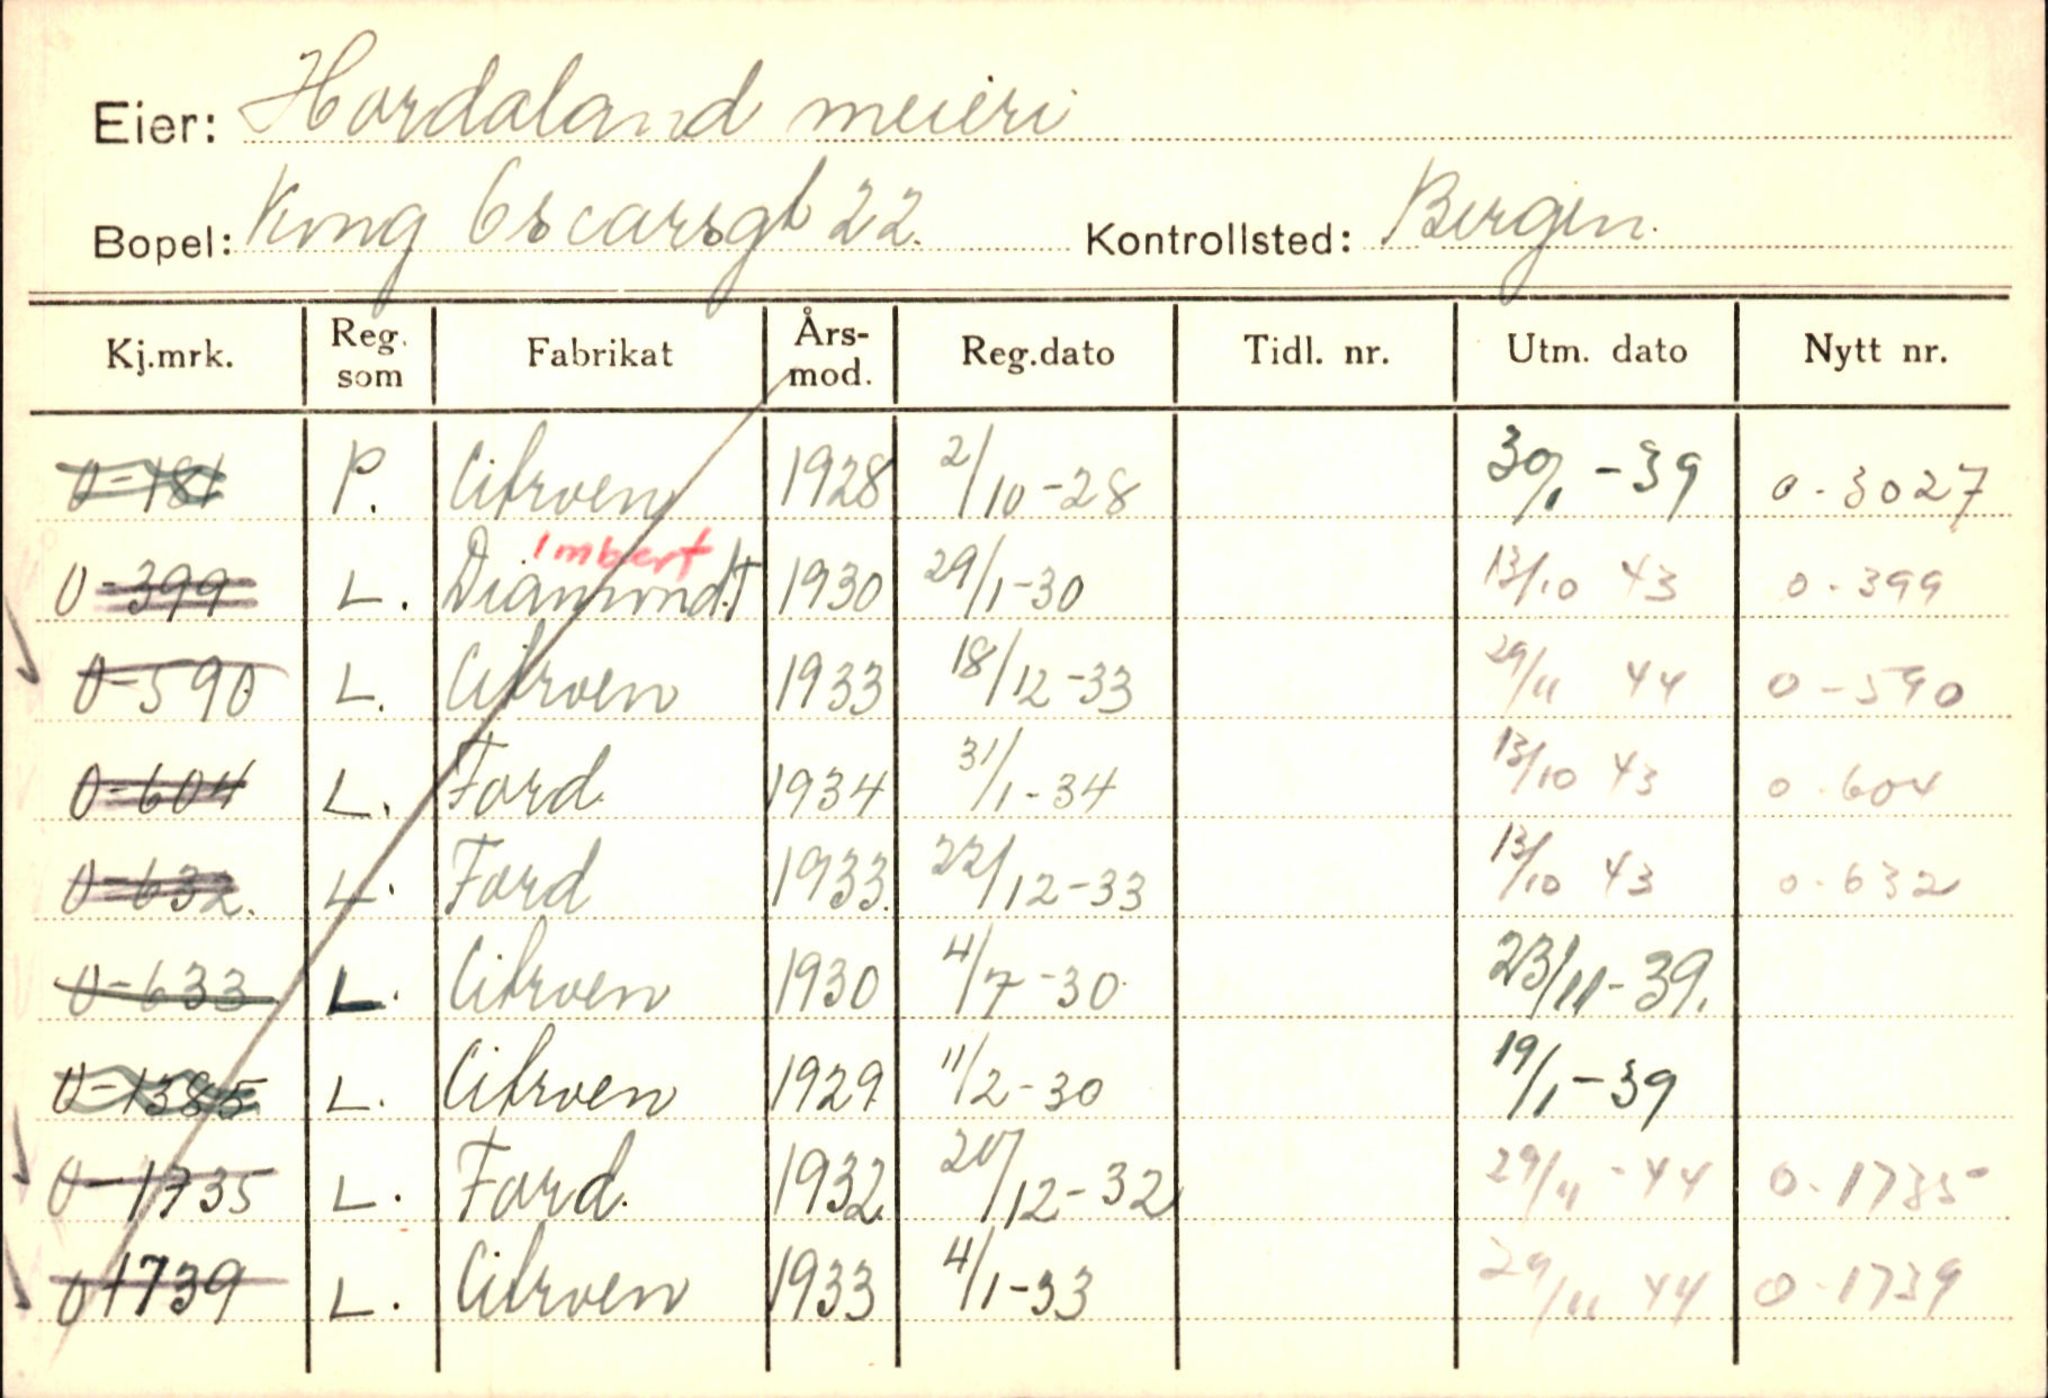 Eier: Hordaland meieri
Bopel: Kong Oscarsgt 22. Kontrollsted: Bergen.
Kj.mrk. Reg. som Fabrikat Års-mod. Reg.dato Tidl. nr. Utm. dato Nytt nr.
O-181 P. Citroen 1928 2/10-28 30/1-39 O-3027
Imbert
O-399 L. Diamond.T 1930 29/1-30 13/10 43 O-399
O-590 L. Citroen 1933 18/12-33 29/11 44 O-590
O-604 L. Ford. 1934 31/1-34 13/10 43 O-604
O-632. L. Ford 1933. 22/12-33 13/10 43 O-632
O-633 L. Citroen 1930 4/7-30 23/11-39.
O-1385 L. Citroen 1929 11/2-30 19/1-39
O-1735 L. Ford. 1932 20/12-32 29/11-44 O-1735
O-1739 L. Citroen 1933 4/1-33 29/11 44 O-1739